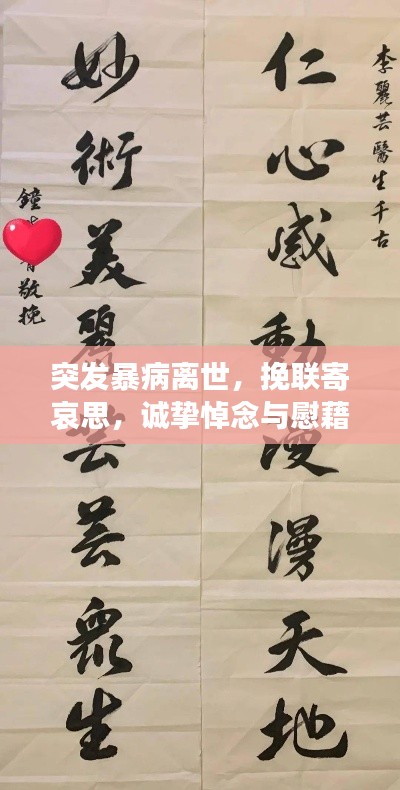 李麗芸醫生千古
仁心感動漫漫天地
妙術美麗芸芸眾生
鐘敬挽
突发暴病离世，挽联寄
哀思，诚挚悼念与慰藉